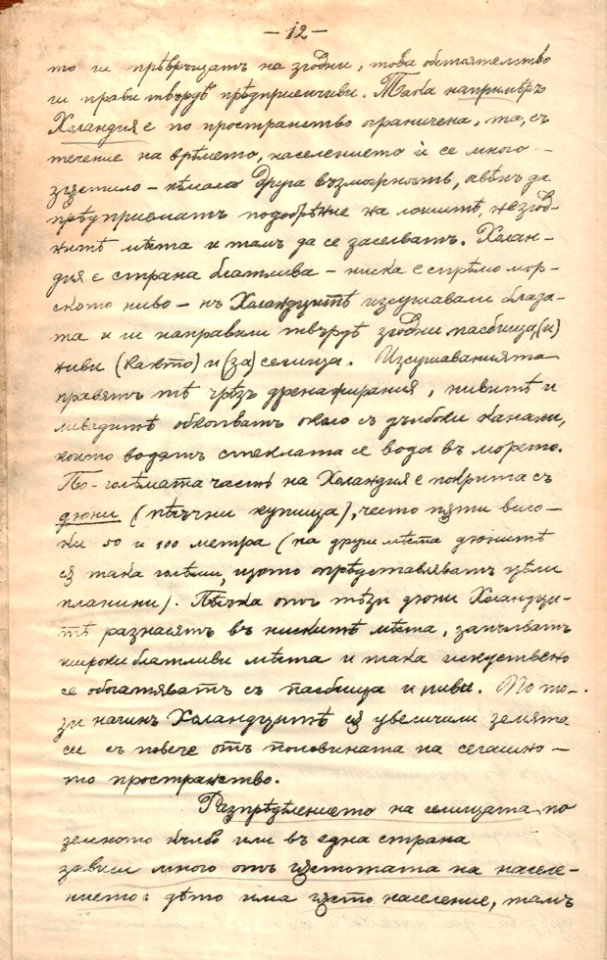 — 12 —
то ги прѣвръщатъ на згодни, това обстоятелство
ги прави твърдѣ прѣдприемчиви. Така напримѣръ
Холандия е по пространство ограничена, та, съ
течение на врѣмето, населението ѝ се много
згѫстило — нѣмало друга возможность, освѣнъ да
прѣдприематъ подобрѣние на лошитѣ, незгод-
нитѣ мѣста и тамъ да се заселватъ. Холан-
дия е страна блатлива — ниска е спрѣмо мор-
ското ниво — нъ Холандцитѣ изсушавали блата-
та и ги направили твърдѣ згодни пасбища (и)
ниви (както) и (за) селища. Изсушаванията
правятъ тѣ чрѣзъ дренажирания, нивитѣ и
ливадитѣ обкопватъ около съ дълбоки канали,
които водятъ стеклата се вода въ морето.
По-голѣмата часть на Холандия е покрита съ
дюни (пѣсъчни купища), често пѫти висо-
ки 50 и 100 метра (на други мѣста дюнитѣ
сѫ така голѣми, щото прѣдставляватъ цѣли
планини). Пѣсъка отъ тѣзи дюни Холандци-
тѣ разнасятъ въ нискитѣ мѣста, запълватъ
широки блатливи мѣста и така искуствено
се обогатяватъ съ пасбища и ниви. По то-
зи начинъ Холандцитѣ сѫ увеличили земята
си съ повече отъ половината на сегашно-
то пространство.
Разпрѣдѣлението на селищата по
земното кълбо или въ една страна
зависи много отъ гѫстотата на населе-
нието: дѣто има гѫсто население, тамъ